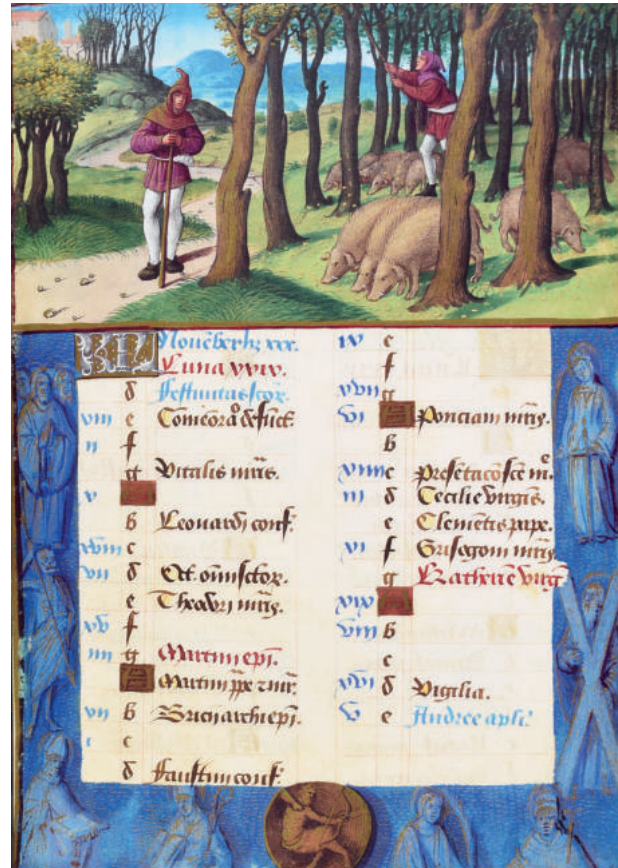 KL Novēber hz xxx.
Luna xxix.
d Festiuitas scōr.
viii e Comēora° defunct.
ii f
g Vitalis mr̄is.
v A
b Leonardi conf.
xviii c
vii d Oct. om̄i sctor.
e Theodri mr̄is.
xv f
iiii g Martini epi.
A Martini pp̄e
vii b Bricii archiepi.
i c
d Faustini conf.
ix e
f
xvii g
vi A Ponciani mr̄is.
b
c
iii d Cecilie virgīs.
e Clemētis pape.
xi f Grisogoni mr̄is
g Katherīe virg
xix A
viii b
c
xvi d Vigilia.
v e Andree apli.